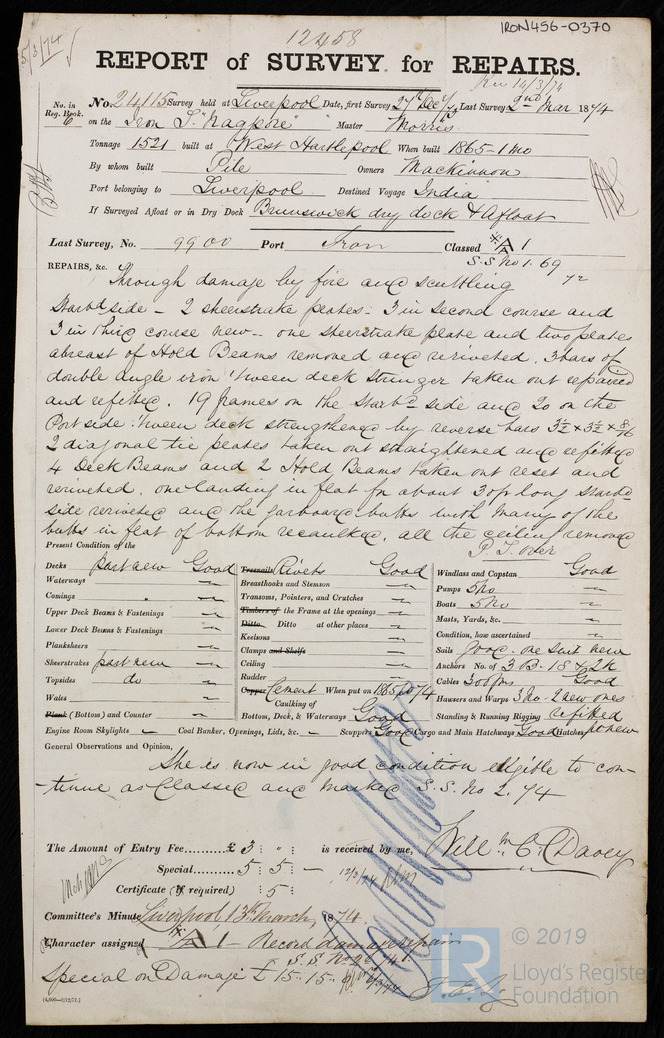 IRON456-0370
12458
5/3/74
REPORT of SURVEY for REPAIRS.
Rec 14/3/74
No. in Reg. Book. 6
No. 24115 Survey held at Liverpool Date, first Survey 27th Decr 73 Last Survey 2nd Mar 1874
on the Iron S. "Nagpore" Master Morris
Tonnage 1521 built at West Hartlepool When built 1865 - 1 mo
By whom built Pile Owners Mackinnon
Port belonging to Liverpool Destined Voyage India
If Surveyed Afloat or in Dry Dock Brunswick dry dock & Afloat
Last Survey, No. 9900 Port Iron Classed A 1
S.S. No 1. 69
72
REPAIRS, &c. Through damage by fire and scuttling
Starbd side - 2 sheerstrake plates - 3 in second course and
3 in third course new - one sheerstrake plate and two plates
abreast of Hold Beams removed and reriveted. 3 bars of
double angle iron 'tween deck stringer taken out repaired
and refitted. 19 frames on the Starbd side and 20 on the
Port side 'tween deck strengthened by reverse bars 3½ x 3½ x 8/16
2 diagonal tie plates taken out straightened and refitted
4 Deck Beams and 2 Hold Beams taken out reset and
reriveted. one landing in flat for about 30 ft long Starbd
side reriveted and the garboard butts with many of the
butts in flat of bottom recaulked, all the ceiling removed
P. T. over
Present Condition of the
Decks part new Good Treenails Rivets Good Windlass and Capstan Good
Waterways Breasthooks and Stemson Pumps 5 No
Comings Transoms, Pointers, and Crutches Boats 5 No
Upper Deck Beams & Fastenings Timbers of the Frame at the openings Masts, Yards, &c.
Lower Deck Beams & Fastenings Ditto Ditto at other places Condition, how ascertained
Planksheers Keelsons Sails good. one suit new
Sheerstrakes part new Clamps and Shelfs Anchors No. of 3 B. 1 S & 2 K
Topsides do Ceiling Cables 300 fms Good
Wales Rudder Hawsers and Warps 3 No. 2 new ones
Plank (Bottom) and Counter Copper Cement When put on 1865 74 Standing & Running Rigging refitted
Caulking of Bottom, Deck, & Waterways Good
Engine Room Skylights Coal Bunker, Openings, Lids, &c. Scuppers Good Cargo and Main Hatchways Good Hatches pt new
General Observations and Opinion,
She is now in good condition eligible to con-
-tinue as Classed and marked S.S. No 2. 74
The Amount of Entry Fee £ 3 : " : is received by me, Willm C. C. Davey
Special 5 : 5 : 12/3/74
Certificate (if required) : 5 :
Committee's Minute Liverpool, 13th March, 1874.
Character assigned A 1 - Record damage repairs
S.S. No 2. 74.
Special on Damage £ 15 .. 15 ..
[4,000-2/12/72.]
© 2019
Lloyd's Register
Foundation